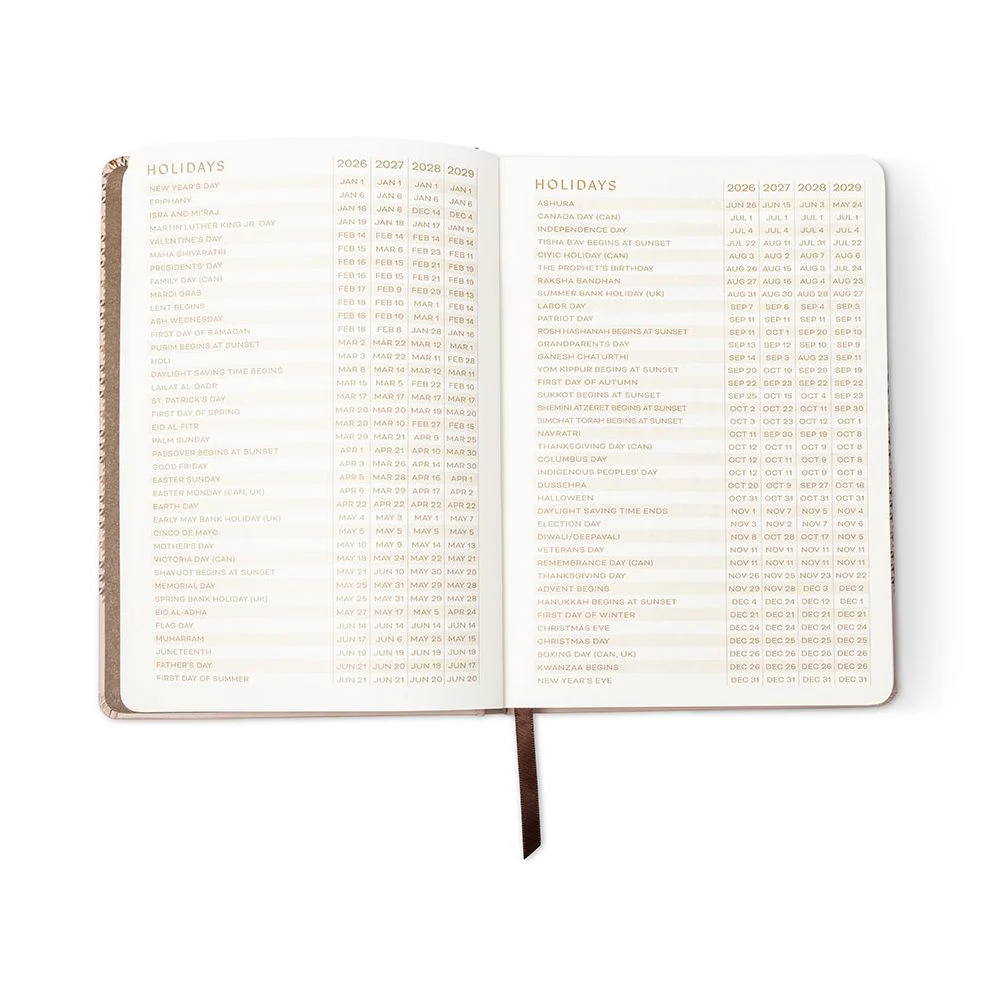 HOLIDAYS 2026 2027 2028 2029
NEW YEAR'S DAY JAN 1 JAN 1 JAN 1 JAN 1
EPIPHANY JAN 6 JAN 6 JAN 6 JAN 6
ISRA AND MI'RAJ JAN 16 JAN 6 DEC 14 DEC 4
MARTIN LUTHER KING JR. DAY JAN 19 JAN 18 JAN 17 JAN 15
VALENTINE'S DAY FEB 14 FEB 14 FEB 14 FEB 14
MAHA SHIVARATRI FEB 15 MAR 6 FEB 23 FEB 11
PRESIDENTS' DAY FEB 16 FEB 15 FEB 21 FEB 19
FAMILY DAY (CAN) FEB 16 FEB 15 FEB 21 FEB 19
MARDI GRAS FEB 17 FEB 9 FEB 29 FEB 13
LENT BEGINS FEB 18 FEB 10 MAR 1 FEB 14
ASH WEDNESDAY FEB 18 FEB 10 MAR 1 FEB 14
FIRST DAY OF RAMADAN FEB 18 FEB 8 JAN 28 JAN 16
PURIM BEGINS AT SUNSET MAR 2 MAR 22 MAR 12 MAR 1
HOLI MAR 3 MAR 22 MAR 11 FEB 28
DAYLIGHT SAVING TIME BEGINS MAR 8 MAR 14 MAR 12 MAR 11
LAILAT AL-QADR MAR 15 MAR 5 FEB 22 FEB 10
ST. PATRICK'S DAY MAR 17 MAR 17 MAR 17 MAR 17
FIRST DAY OF SPRING MAR 20 MAR 20 MAR 20 MAR 20
EID AL-FITR MAR 20 MAR 10 FEB 27 FEB 15
PALM SUNDAY MAR 29 MAR 21 APR 9 MAR 25
PASSOVER BEGINS AT SUNSET APR 1 APR 21 APR 10 MAR 30
GOOD FRIDAY APR 3 MAR 26 APR 14 MAR 30
EASTER SUNDAY APR 5 MAR 28 APR 16 APR 1
EASTER MONDAY (CAN, UK) APR 6 MAR 29 APR 17 APR 2
EARTH DAY APR 22 APR 22 APR 22 APR 22
EARLY MAY BANK HOLIDAY (UK) MAY 4 MAY 3 MAY 1 MAY 7
CINCO DE MAYO MAY 5 MAY 5 MAY 5 MAY 5
MOTHER'S DAY MAY 10 MAY 9 MAY 14 MAY 13
VICTORIA DAY (CAN) MAY 18 MAY 24 MAY 22 MAY 21
SHAVUOT BEGINS AT SUNSET MAY 21 JUN 10 MAY 30 MAY 20
MEMORIAL DAY MAY 25 MAY 31 MAY 29 MAY 28
SPRING BANK HOLIDAY (UK) MAY 25 MAY 31 MAY 29 MAY 28
EID AL-ADHA MAY 27 MAY 17 MAY 5 APR 24
FLAG DAY JUN 14 JUN 14 JUN 14 JUN 14
MUHARRAM JUN 17 JUN 6 MAY 25 MAY 15
JUNETEENTH JUN 19 JUN 19 JUN 19 JUN 19
FATHER'S DAY JUN 21 JUN 20 JUN 18 JUN 17
FIRST DAY OF SUMMER JUN 21 JUN 21 JUN 20 JUN 20
HOLIDAYS 2026 2027 2028 2029
ASHURA JUN 26 JUN 15 JUN 3 MAY 24
CANADA DAY (CAN) JUL 1 JUL 1 JUL 1 JUL 1
INDEPENDENCE DAY JUL 4 JUL 4 JUL 4 JUL 4
TISHA B'AV BEGINS AT SUNSET JUL 22 AUG 11 JUL 31 JUL 22
CIVIC HOLIDAY (CAN) AUG 3 AUG 2 AUG 7 AUG 6
THE PROPHET'S BIRTHDAY AUG 26 AUG 15 AUG 3 JUL 24
RAKSHA BANDHAN AUG 27 AUG 16 AUG 4 AUG 23
SUMMER BANK HOLIDAY (UK) AUG 31 AUG 30 AUG 28 AUG 27
LABOR DAY SEP 7 SEP 6 SEP 4 SEP 3
PATRIOT DAY SEP 11 SEP 11 SEP 11 SEP 11
ROSH HASHANAH BEGINS AT SUNSET SEP 11 OCT 1 SEP 20 SEP 10
GRANDPARENTS DAY SEP 13 SEP 12 SEP 10 SEP 9
GANESH CHATURTHI SEP 14 SEP 3 AUG 23 SEP 11
YOM KIPPUR BEGINS AT SUNSET SEP 20 OCT 10 SEP 29 SEP 18
FIRST DAY OF AUTUMN SEP 22 SEP 23 SEP 22 SEP 22
SUKKOT BEGINS AT SUNSET SEP 25 OCT 15 OCT 4 SEP 23
SHEMINI ATZERET BEGINS AT SUNSET OCT 2 OCT 22 OCT 11 SEP 30
SIMCHAT TORAH BEGINS AT SUNSET OCT 3 OCT 23 OCT 12 OCT 1
NAVRATRI OCT 11 SEP 30 SEP 19 OCT 8
THANKSGIVING DAY (CAN) OCT 12 OCT 11 OCT 9 OCT 8
COLUMBUS DAY OCT 12 OCT 11 OCT 9 OCT 8
INDIGENOUS PEOPLES' DAY OCT 12 OCT 11 OCT 9 OCT 8
DUSSEHRA OCT 20 OCT 9 SEP 27 OCT 16
HALLOWEEN OCT 31 OCT 31 OCT 31 OCT 31
DAYLIGHT SAVING TIME ENDS NOV 1 NOV 7 NOV 5 NOV 4
ELECTION DAY NOV 3 NOV 2 NOV 7 NOV 6
DIWALI/DEEPAVALI NOV 8 OCT 28 OCT 17 NOV 5
VETERANS DAY NOV 11 NOV 11 NOV 11 NOV 11
REMEMBRANCE DAY (CAN) NOV 11 NOV 11 NOV 11 NOV 11
THANKSGIVING DAY NOV 26 NOV 25 NOV 23 NOV 22
ADVENT BEGINS NOV 29 NOV 28 DEC 3 DEC 2
HANUKKAH BEGINS AT SUNSET DEC 4 DEC 24 DEC 12 DEC 1
FIRST DAY OF WINTER DEC 21 DEC 21 DEC 21 DEC 21
CHRISTMAS EVE DEC 24 DEC 24 DEC 24 DEC 24
CHRISTMAS DAY DEC 25 DEC 25 DEC 25 DEC 25
BOXING DAY (CAN, UK) DEC 26 DEC 26 DEC 26 DEC 26
KWANZAA BEGINS DEC 26 DEC 26 DEC 26 DEC 26
NEW YEAR'S EVE DEC 31 DEC 31 DEC 31 DEC 31